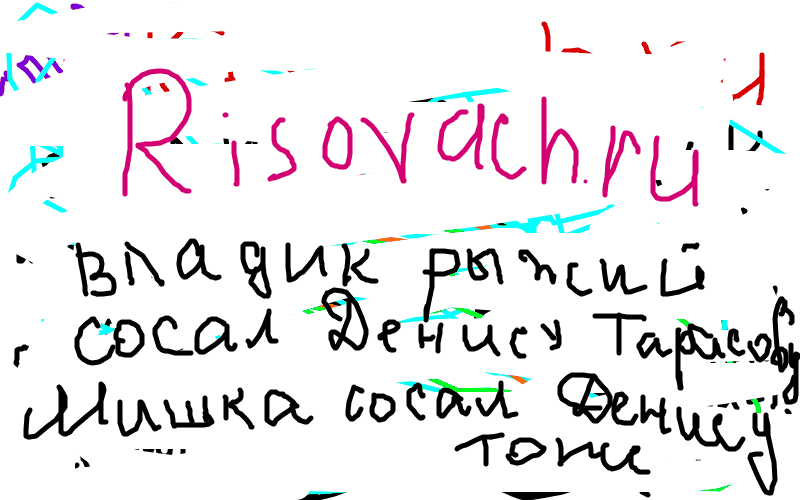 Risovach.ru
Владик рыжий
сосал Денису Тарасову
Мишка сосал Денису
тоже